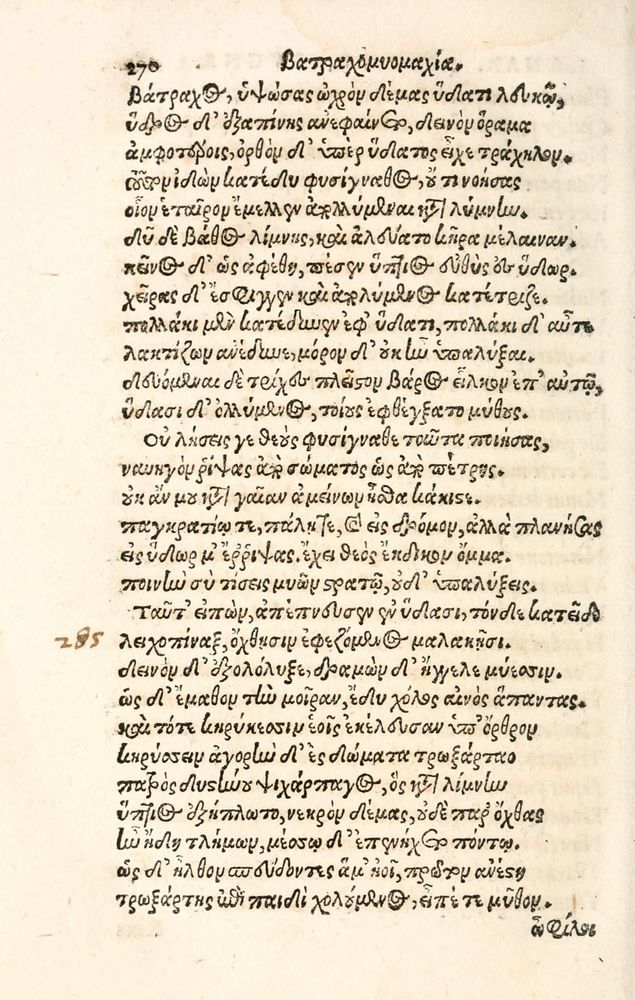 270 Βατραχομυομαχία.
Βάτραχος, ὑψώσας ὠχρὸν δέμας ὕδατι λευκῷ,
ὕδρος δ' ἐξαπίνης ἀνεφαίνετο, δεινὸν ὅραμα
ἀμφοτέροις, ὀρθὸν δ' ὑπὲρ ὕδατος εἶχε τράχηλον.
τοῦτον ἰδὼν κατέδυ φυσίγναθος, οὔ τι νοήσας
οἷον ἑταῖρον ἔμελλεν ἀπολλύμεναι κατὰ λίμνην.
δῦ δὲ βάθος λίμνης, καὶ ἀλεύατο κῆρα μέλαιναν.
κεῖνος δ' ὡς ἀφέθη, πέσεν ὕπτιος εὐθὺς ἐς ὕδωρ.
χεῖρας δ' ἔσφιγγεν καὶ ἀπολύμενος κατέτριζε.
πολλάκι μὲν κατέδυνεν ἐφ' ὕδατι, πολλάκι δ' αὖτε
λακτίζων ἀνέδυνε, μόρον δ' οὐκ ἦν ὑπαλύξαι.
δευόμεναι δὲ τρίχες πλεῖστον βάρος εἷλκον ἐπ' αὐτῷ,
ὕδασι δ' ὀλλύμενος, τοίους ἐφθέγξατο μύθους.
Οὐ λήσεις γε θεοὺς φυσίγναθε ταῦτα ποιήσας,
ναυηγὸν ῥίψας ἀπὸ σώματος ὡς ἀπὸ πέτρης.
οὐκ ἄν μου κατὰ γαῖαν ἀμείνων ἦσθα κάκιστε.
παγκρατίῳ τε, πάλῃ τε, καὶ εἰς δρόμον, ἀλλὰ πλανήσας
εἰς ὕδωρ μ' ἔρριψας. ἔχει θεὸς ἔκδικον ὄμμα.
ποινὴν σὺ τίσεις μυῶν στρατῷ, οὐδ' ὑπαλύξεις.
Ταῦτ' εἰπὼν, ἀπέπνευσεν ἐν ὕδασι, τὸν δὲ κατεῖδε
285 λειχοπίναξ, ὄχθησιν ἐφεζόμενος μαλακῇσι.
δεινὸν δ' ἐξολόλυξε, δραμὼν δ' ἤγγελε μύεσσιν.
ὡς δ' ἔμαθον τὴν μοῖραν, ἔδυ χόλος αἰνὸς ἅπαντας.
καὶ τότε κηρύκεσσιν ἑοῖς ἐκέλευσαν ὑπ' ὄρθρον
κηρύσσειν ἀγορὴν δ' ἐς δώματα τρωξάρταο
πατρὸς δυστήνου ψιχάρπαγος, ὃς κατὰ λίμνην
ὕπτιος ἐξήπλωτο, νεκρὸν δέμας, οὐδὲ παρ' ὄχθας
ἦν ἤδη τλήμων, μέσσῳ δ' ἐπενήχετο πόντῳ.
ὡς δ' ἦλθον σπεύδοντες ἅμ' ἠοῖ, πρῶτον ἀνέστη
τρωξάρτης ἐπὶ παιδὶ χολούμενος, εἶπέ τε μῦθον.
ὦ φίλοι